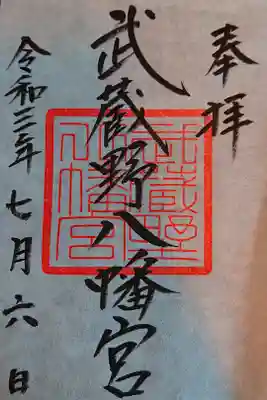 奉拝
武蔵野八幡宮
令和三年七月六日
武蔵野
八幡宮